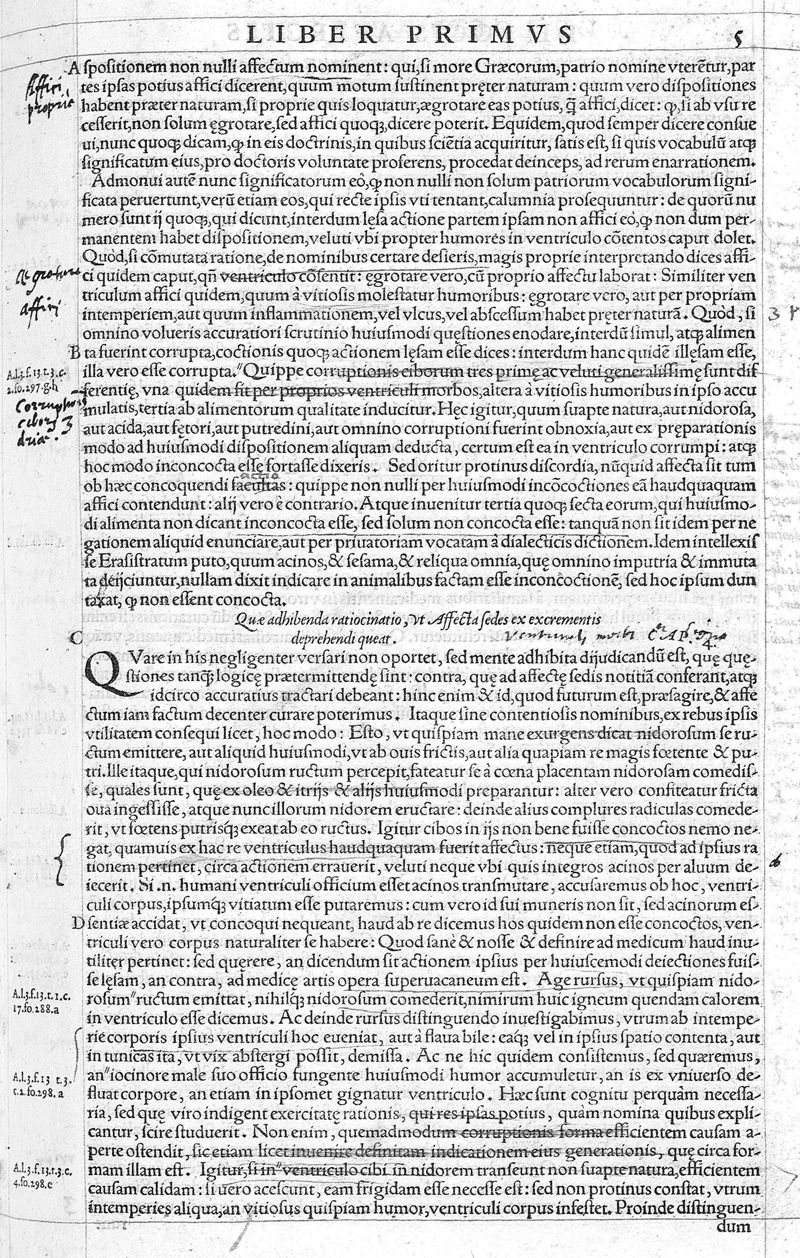 LIBER PRIMVS 5
A spositionem non nulli affectum nominent: qui, si more Græcorum, patrio nomine vterẽtur, par
tes ipsas potius affici dicerent, quum motum sustinent pręter naturam: quum vero dispositiones
habent præter naturam, si proprie quis loquatur, ægrotare eas potius, q̃ affici, dicet: ꝙ, si ab vsu re
cesserit, non solum ęgrotare, sed affici quoqꝫ, dicere poterit. Equidem, quod semper dicere consue
ui, nunc quoqꝫ dicam, ꝙ in eis doctrinis, in quibus sciẽtia acquiritur, satis est, si quis vocabulũ atqꝫ
significatum eius, pro doctoris voluntate proferens, procedat deinceps, ad rerum enarrationem.
Admonui autẽ nunc significatorum eò, ꝙ non nulli non solum patriorum vocabulorum signi-
ficata peruertunt, verũ etiam eos, qui recte ipsis vti tentant, calumnia prosequuntur: de quorũ nu
mero sunt ij quoqꝫ, qui dicunt, interdum lęsa actione partem ipsam non affici eò, ꝙ non dum per-
manentem habet dispositionem, veluti vbi propter humores in ventriculo cõtentos caput dolet.
Quòd, si cõmutata ratione, de nominibus certare desieris, magis proprie interpretando dices affi-
ci quidem caput, qñ ventriculo cõsentit: ęgrotare vero, cũ proprio affectu laborat: Similiter ven
triculum affici quidem, quum à vitiosis molestatur humoribus: ęgrotare vero, aut per propriam
intemperiem, aut quum inflammationem, vel vlcus, vel abscessum habet pręter naturã. Quòd, si
omnino volueris accuratiori scrutinio huiusmodi quęstiones enodare, interdũ simul, atqꝫ alimen
B ta fuerint corrupta, coctionis quoqꝫ actionem lęsam esse dices: interdum hanc quidẽ illęsam esse,
illa vero esse corrupta." Quippe corruptionis ciborum tres primę ac veluti generalissimę sunt dif
ferentię, vna quidem fit per proprios ventriculi morbos, altera à vitiosis humoribus in ipso accu
mulatis, tertia ab alimentorum qualitate inducitur. Hęc igitur, quum suapte natura, aut nidorosa,
aut acida, aut fętori, aut putredini, aut omnino corruptioni fuerint obnoxia, aut ex pręparationis
modo ad huiusmodi dispositionem aliquam deducta, certum est ea in ventriculo corrumpi: atqꝫ
hoc modo inconcocta esse fortasse dixeris. Sed oritur protinus discordia, nũquid affecta sit tum
ob hæc concoquendi facultas: quippe non nulli per huiusmodi incõcoctiones eã haudquaquam
affici contendunt: alij vero è contrario. Atque inuenitur tertia quoqꝫ secta eorum, qui huiusmo-
di alimenta non dicant inconcocta esse, sed solum non concocta esse: tanquã non sit idem per ne
gationem aliquid enunciare, aut per priuatoriam vocatam à dialecticis dictionem. Idem intellexis
se Erasistratum puto, quum acinos, & sesama, & reliqua omnia, quę omnino imputria & immuta
ta deijciuntur, nullam dixit indicare in animalibus factam esse inconcoctionẽ, sed hoc ipsum dun
taxat, ꝙ non essent concocta.
Quæ adhibenda ratiocinatio, vt Affecta sedes ex excrementis
C deprehendi queat.
QVare in his negligenter versari non oportet, sed mente adhibita dijudicandũ est, quę quę-
stiones tanq̃ logicę prætermittendę sint: contra, quę ad affectę sedis notitiã conferant, atqꝫ
idcirco accuratius tractari debeant: hinc enim & id, quod futurum est, præsagire, & affe
ctum iam factum decenter curare poterimus. Itaque sine contentiosis nominibus, ex rebus ipsis
vtilitatem consequi licet, hoc modo: Esto, vt quispiam mane exurgens dicat nidorosum se ru-
ctum emittere, aut aliquid huiusmodi, vt ab ouis frictis, aut alia quapiam re magis fœtente & pu-
tri. Ille itaque, qui nidorosum ructum percepit, fateatur se à cœna placentam nidorosam comedis-
se, quales sunt, quę ex oleo & itrijs & alijs huiusmodi preparantur: alter vero confiteatur fricta
oua ingessisse, atque nunc illorum nidorem eructare: deinde alius complures radiculas comede-
rit, vt fœtens putrisqꝫ exeat ab eo ructus. Igitur cibos in ijs non bene fuisse concoctos nemo ne-
gat, quamuis ex hac re ventriculus haudquaquam fuerit affectus: neque etiam, quod ad ipsius ra
tionem pertinet, circa actionem errauerit, veluti neque vbi quis integros acinos per aluum de-
iecerit. Si .n. humani ventriculi officium esset acinos transmutare, accusaremus ob hoc, ventri-
culi corpus, ipsumqꝫ vitiatum esse putaremus: cum vero id sui muneris non sit, sed acinorum es-
D sentiæ accidat, vt concoqui nequeant, haud ab re dicemus hos quidem non esse concoctos, ven-
triculi vero corpus naturaliter se habere: Quod sanè & nosse & definire ad medicum haud inu-
tiliter pertinet: sed quęrere, an dicendum sit actionem ipsius per huiuscemodi deiectiones fuis-
se lęsam, an contra, ad medicę artis opera superuacaneum est. Age rursus, vt quispiam nido-
rosum" ructum emittat, nihilqꝫ nidorosum comederit, nimirum huic igneum quendam calorem
in ventriculo esse dicemus. Ac deinde rursus distinguendo inuestigabimus, vtrum ab intempe-
rie corporis ipsius ventriculi hoc eueniat, aut à flaua bile: eaqꝫ vel in ipsius spatio contenta, aut
in tunicas ita, vt vix abstergi possit, demissa. Ac ne hic quidem consistemus, sed quæremus,
an" iocinore male suo officio fungente huiusmodi humor accumuletur, an is ex vniuerso de-
fluat corpore, an etiam in ipsomet gignatur ventriculo. Hæc sunt cognitu perquàm necessa-
ria, sed quę viro indigent exercitatę rationis, qui res ipsas potius, quàm nomina quibus expli-
cantur, scire studuerit. Non enim, quemadmodum corruptionis forma efficientem causam a-
perte ostendit, sic etiam licet inuenire definitam indicationem eius generationis, quę circa for-
mam illam est. Igitur, si in" ventriculo cibi in nidorem transeunt non suapte natura, efficientem
causam calidam: si uero acescunt, eam frigidam esse necesse est: sed non protinus constat, vtrum
intemperies aliqua, an vitiosus quispiam humor, ventriculi corpus infestet. Proinde distinguen-
dum
Affici
proprie
Aegrotare
affici
A.l.3.f.13.t.3.c.
2.fo.297.g.h
Corruptionis
cibor̃ 3
driæ.
A.l.3.f.13.t.1.c.
17.fo.288.a
A.l.3.f.13 t.3.
c.2.fo.298.a
A.l.3.f.13.t.3.c.
4.fo.298.c